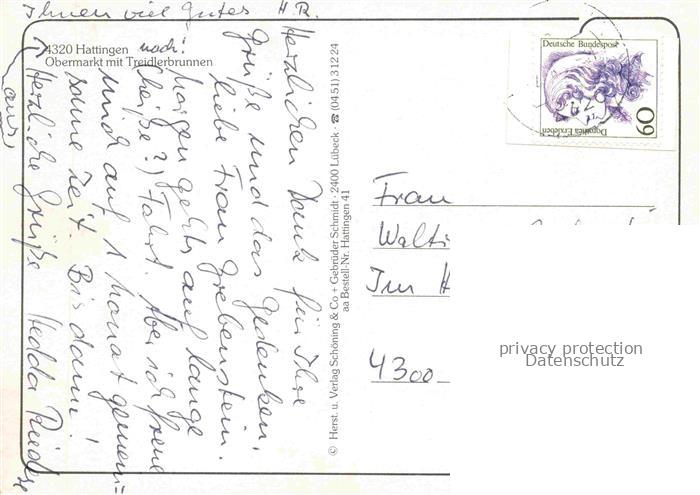 Ihnen viel Gutes H.R.
4320 Hattingen
Obermarkt mit Treidlerbrunnen
noch!
Herzlichen Dank für Ihre
Grüße und das Gedenken,
liebe Frau Grebenstein.
Morgen geht's auf lange
(heiße?) Fahrt. Aber ich freue
mich auf 1 Monat gemein=
same Zeit. Bis dann!
Herzliche Grüße Hedda
auch
© Herst. u. Verlag Schöning & Co + Gebrüder Schmidt · 2400 Lübeck · ☎ (04 51) 3 12 24
aa Bestell-Nr. Hattingen 41
Deutsche Bundespost
Dorothea Erxleben
60
Frau
Im H
4300
privacy protection
Datenschutz